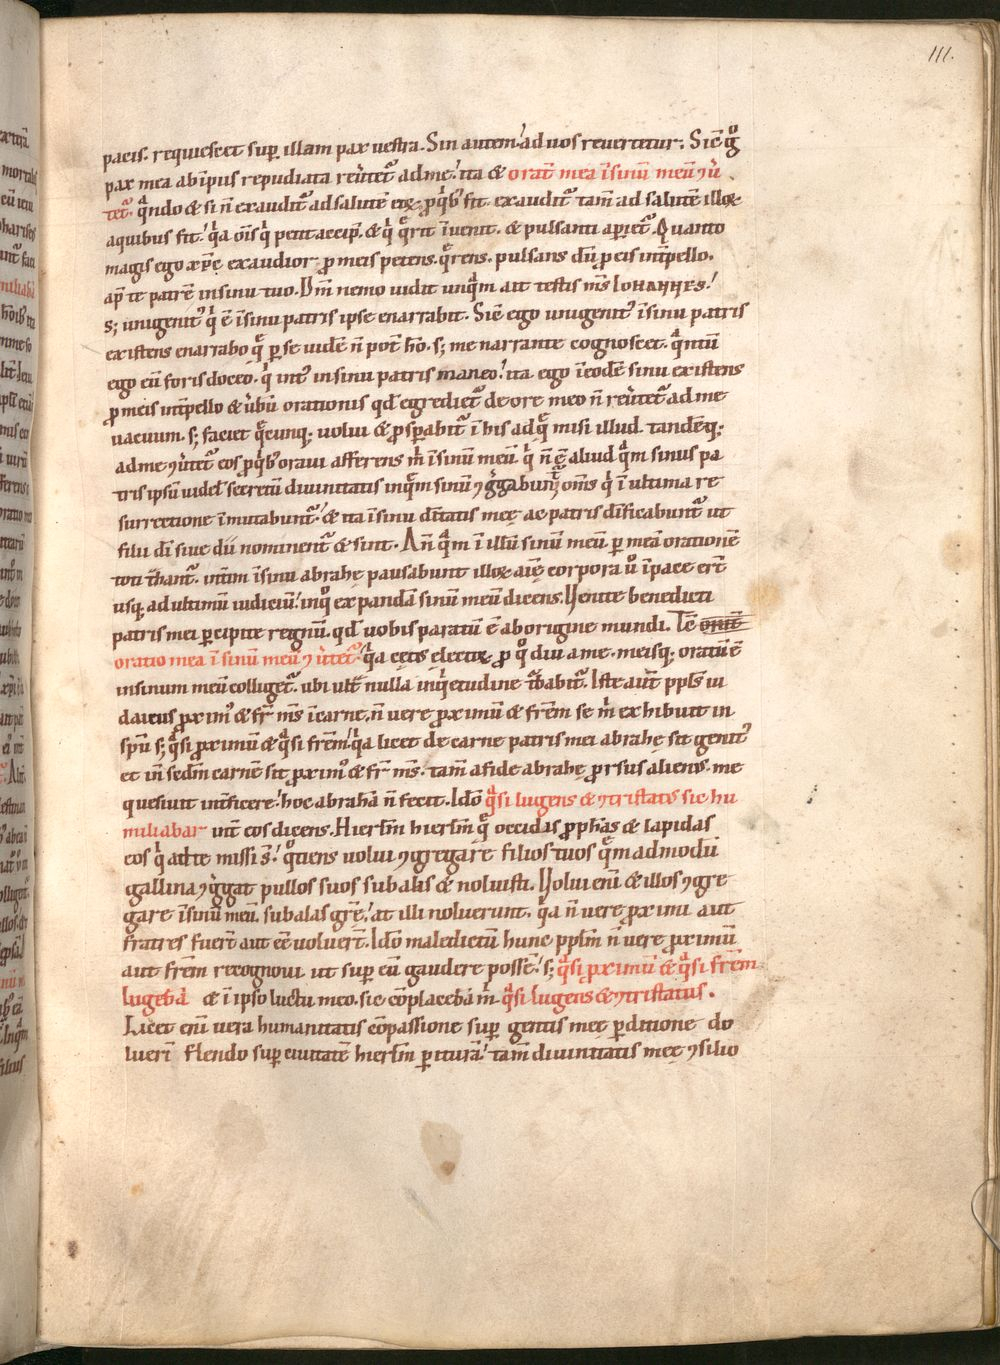 111.
pacis. requiescet sup̱ illam pax vestra. Sin autem! ad uos reuertitur; Sic̄ gͦ
pax mea ab īpiis repudiata reu̓tet᷑ ad me! ita & orat̄ mea īsinū meū ꝯu̓
tet᷑. qͣndo & si n̄ exaudit᷑ ad salutē eoꝝ ꝓ qͥb; fit. exaudit᷑ tam̄ ad salutē illoꝝ
a quibus fit! qͥa om̄is qͥ petit accip̄. & qͥ q̄rit īuenit. & pulsanti ap̱iet᷑. Quanto
magis ego xp̄c exaudior ꝓ meis petens. q̄rens. pulsans dū ꝓ eis int̓pello.
ap̄ te patrē in sinu tuo. Dm̄ nemo uidit unqͣm ait testis m̄s IOHANNES!
s; unigenit᷒ qͥ ē īsinu patris ipse enarrabit. Sic̄ ego unigenit᷒ īsinu patris
existens enarrabo q̄ p̱ se uidē n̄ pot̄ hō. s; me narrante cognoscet. qͣntū
ego eū foris doceo. qͥ int᷒ in sinu patris maneo! ita ego īeodē sinu existens
ꝓ meis int̓pello & u̓bū orationis qd̄ egrediet᷑ de ore meo n̄ reu̓tet᷑ ad me
uacuum. s; faciet q̄cunq; uolui & ꝓsp̱abit᷑ ī his ad q̄ misi illud. tandēq;
ad me ꝯu̓tet᷑ eos ꝓ qͥb; oraui afferens m̄ īsinū meū. qͥ n̄ ē aliud qͣm sinus pa
tris ipsū uidel; secretū diuinitatis inqͣm sinū ꝯg̓gabunt᷑ om̄s qͥ ī ultima re
surrectione īmutabunt᷑! & ita īsinu dītatis meę ac patris dīficabunt᷑ ut
filii dī siue dii nominent᷑ & sint. An̄ qͣm ī illū sinū meū p̱ meā orationē
toti t̓hant᷑. int̓im īsinu abrahę pausabunt illoꝝ aīę corpora u̓ ī pace er̄t
usq; ad ultimū iudiciū! in qͦ expandā sinū meū dicens. Uenite benedicti
patris mei p̱cipite regnū. qd̄ uobis paratū ē ab origine mundi. Tc̄
oratio mea īsinū meū ꝯu̓tet᷑! qͥa cęt᷒ electoꝝ ꝓ qͦ diu a me. meisq; oratū ē
in sinum meū colliget᷑. ubi ult̓ nulla inqͥetudine t̓babit᷑. Iste aut̄ ppl̄s iu
daicus ꝓxim᷒ & fr̄ m̄s ī carne. n̄ uere ꝓximū & frēm se m̄ exhibuit in
spū s; qͣsi ꝓximū & qͣsi frēm! qͥa licet de carne patris mei abrahę sit genit᷒
et iō sedm̄ carnē sit ꝓxim᷒ & fr̄ m̄s. tam̄ a fide abrahę ꝓrsus alien᷒. me
quesiuit int̓ficere! hoc abrahā n̄ fecit. Idō qͣsi lugens & ꝯtristat᷒ sic hu
miliabar int̄ eos dicens. Hierl̄m hierl̄m q̄ occidis ꝓph̄as & lapidas
eos qͥ ad te missi s̄! qͦtiens uolui ꝯgregare filios tuos quēm admodū
gallina ꝯg̓gat pullos suos sub alis & noluisti. Uolui enī & illos ꝯgre
gare īsinū meū. sub alas gr̄ę! at illi noluerunt. qͥa n̄ uere ꝓximi aut
fratres fuer̄t aut eē uoluer̄t. Idō maledictū hunc pplm̄ n̄ uere ꝓximū
aut frēm recognoui ut sup̱ eū gaudere possē! s; qͣsi ꝓximū & qͣsi frēm
lugebā & ī ipso luctu meo. sic cōplacebā m̄ qͣsi lugens & ꝯtristatus.
Licet enī uera humanitatis cōpassione sup̱ gentis meę p̱ditione do
luerī flendo sup̱ ciuitatē hierl̄m p̱iturā! tam̄ diuinitatis meę ꝯsilio